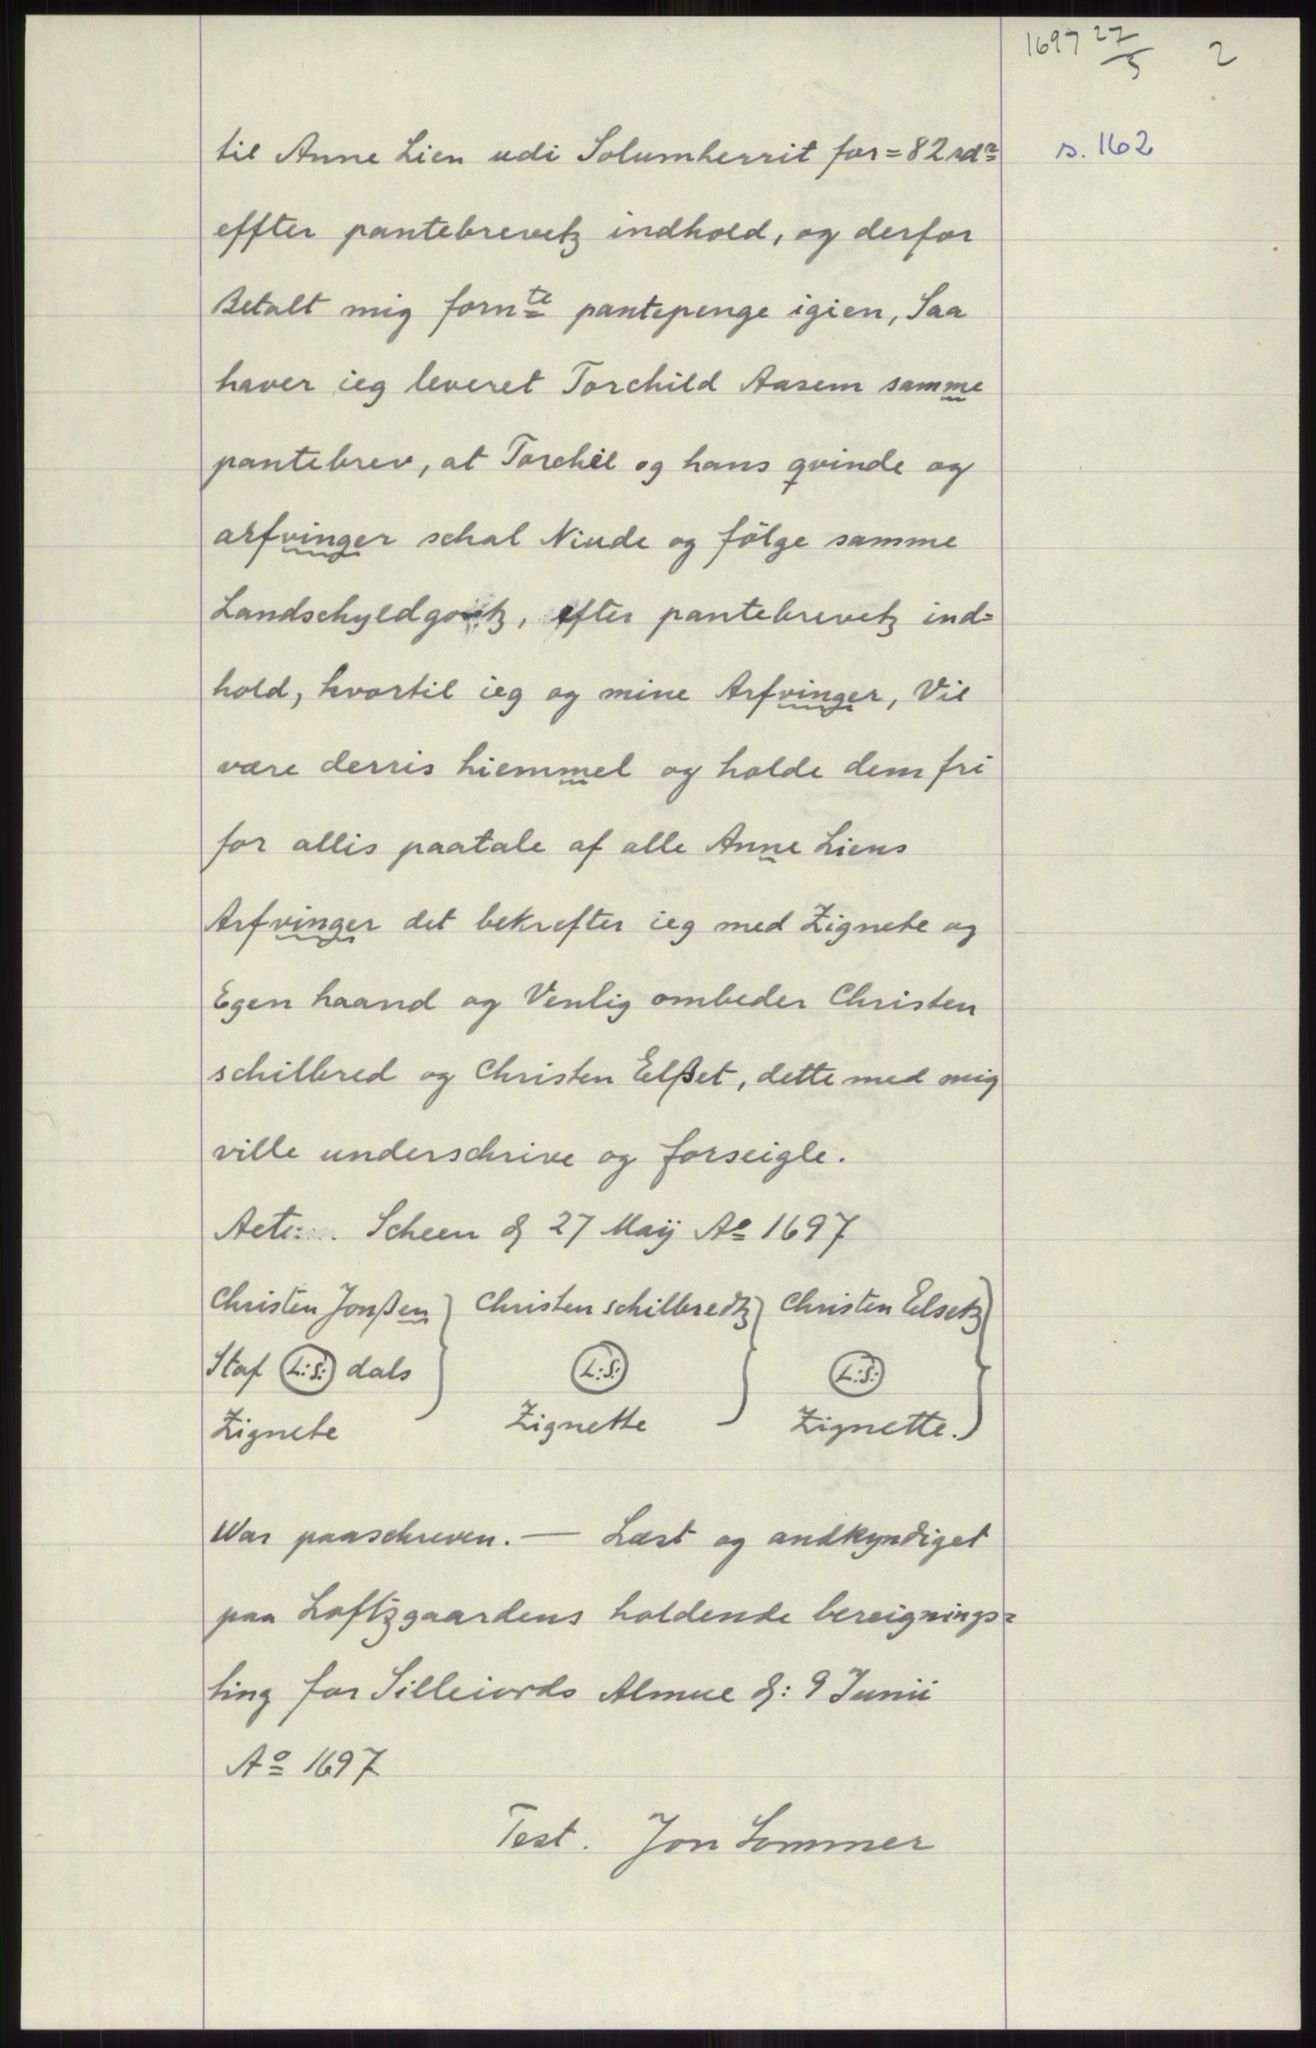 1697 27/5 2
s. 162
til Anne Lien udi Solumherrit for = 82 rdr
effter pantebrevetz indhold, og derfor
Betalt mig fornte pantepenge igien, Saa
haver ieg leveret Torchild Aasem samme
pantebrev, at Torchil og hans qvinde og
arfvinger schal Niude og fölge samme
Landschyldgootz, efter pantebrevetz ind=
hold, hvortil ieg og mine Arfvinger, Vil
være derris hiemmel og holde dem fri
for allis paatale af alle Anne Liens
Arfvinger det bekrefter ieg med Zignete og
Egen haand og Venlig ombeder Christen
schilbred og Christen Elßet, dette med mig
ville underschrive og forseigle.
Scheen d 27 Maÿ Ao 1697
Christen Jonßen } Christen schilbredtz } Christen Elsetz }
Staf L:S: dals L:S: L:S:
Zignete Zignette Zignette.
War paaschreven. — Læst og andkyndiget
paa Loftzgaardens holdende bereignings=
ting for Silleiords Almue d: 9 Junii
Ao 1697
Test. Jon Sommer